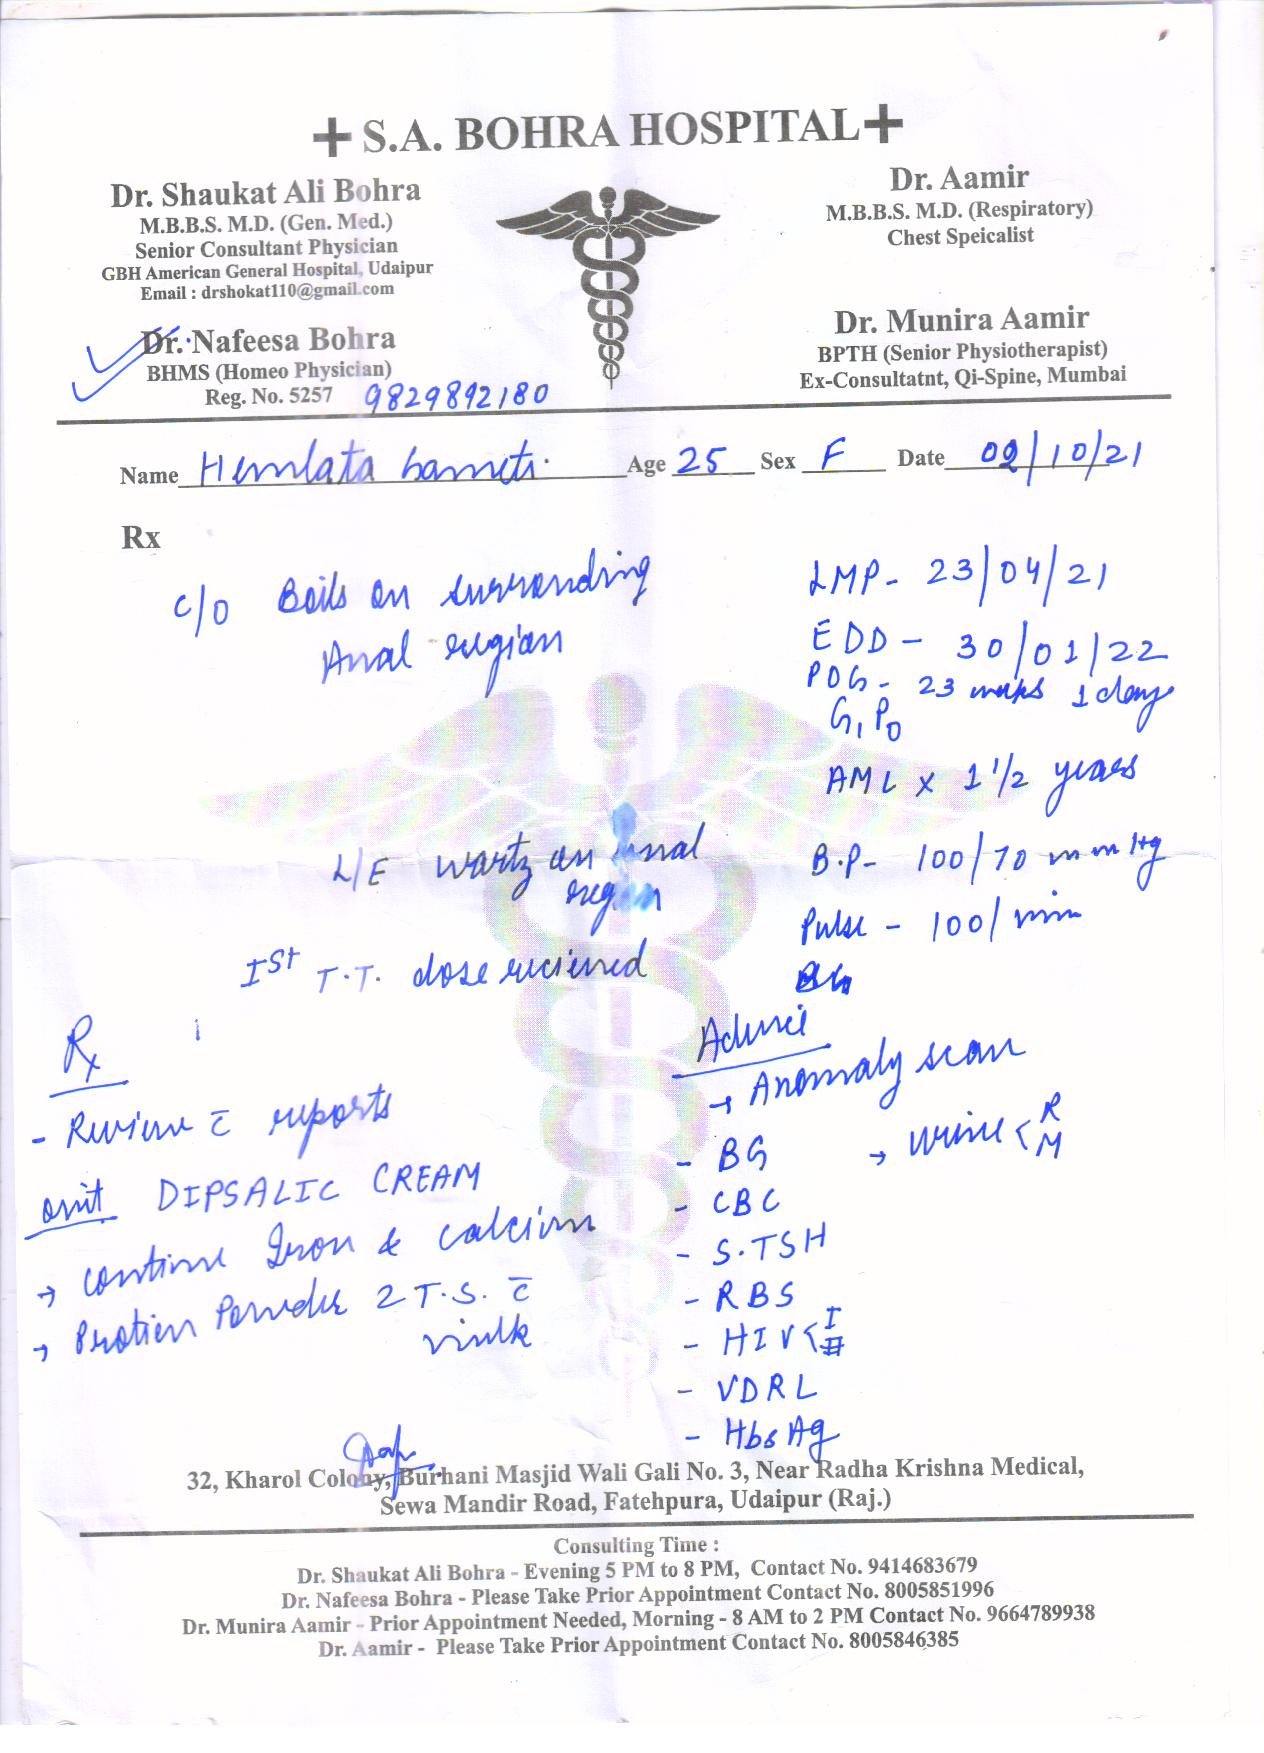 + S.A. BOHRA HOSPITAL +
Dr. Shaukat Ali Bohra
M.B.B.S. M.D. (Gen. Med.)
Senior Consultant Physician
GBH American General Hospital, Udaipur
Email : drshokat110@gmail.com
Dr. Nafeesa Bohra
BHMS (Homeo Physician)
Reg. No. 5257 9829892180
Dr. Aamir
M.B.B.S. M.D. (Respiratory)
Chest Speicalist
Dr. Munira Aamir
BPTH (Senior Physiotherapist)
Ex-Consultatnt, Qi-Spine, Mumbai
Name Hemlata Age 25 Sex F Date 02/10/21
Rx
C/O Boils on surranding
Anal region
L/E wartz an anal
region
Ist T.T. dose recieved
LMP- 23/04/21
EDD - 30/01/22
POG - 23 weeks 1 day
G1P0
AML x 1 1/2 years
B.P- 100/70 mmHg
Pulse - 100/min
Rx
- Review c̄ reports
omit DIPSALIC CREAM
→ continue Iron & calcium
→ Protien Powder 2 T.S. c̄
milk
Advice
→ Anomaly scan
- BG → urine < R
M
- CBC
- S.TSH
- RBS
- HIV < I
II
- VDRL
- HbsAg
32, Kharol Colony, Burhani Masjid Wali Gali No. 3, Near Radha Krishna Medical,
Sewa Mandir Road, Fatehpura, Udaipur (Raj.)
Consulting Time :
Dr. Shaukat Ali Bohra - Evening 5 PM to 8 PM, Contact No. 9414683679
Dr. Nafeesa Bohra - Please Take Prior Appointment Contact No. 8005851996
Dr. Munira Aamir - Prior Appointment Needed, Morning - 8 AM to 2 PM Contact No. 9664789938
Dr. Aamir - Please Take Prior Appointment Contact No. 8005846385